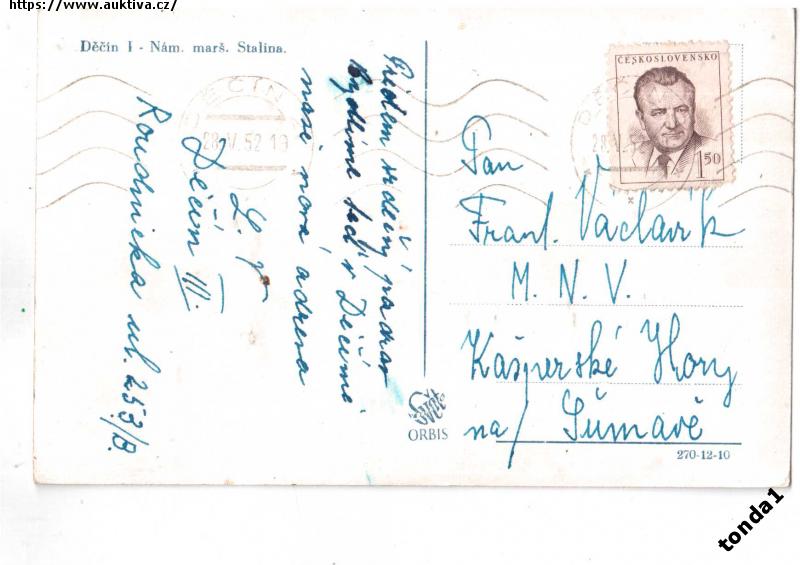 https://www.auktiva.cz/
Děčín I - Nám. marš. Stalina.
srdečný pozdrav
Bydlíme teď v Děčíně
naše nová adresa
L. V.
Děčín III.
Roudnická ul. 253/B.
ĚČÍN
28.V.52.19
ČESKOSLOVENSKO
1 50
Pan
Frant. Václavík
M. N. V.
Kašperské Hory
na Šumavě
ORBIS
270-12-10
tonda1